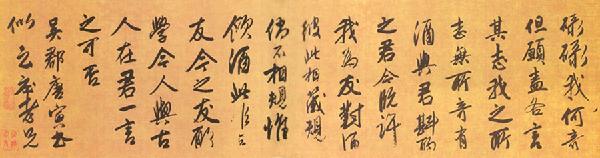 碌碌我何奇
但願盡各言
其志我之所
志無所奇有
酒與君斟酌
之君今既許
我為友對酒
彼此相箴規
倘不相規惟
傾酒此
友今之友願
學今人與古
人在君一言
之可否
吳郡唐寅書
似